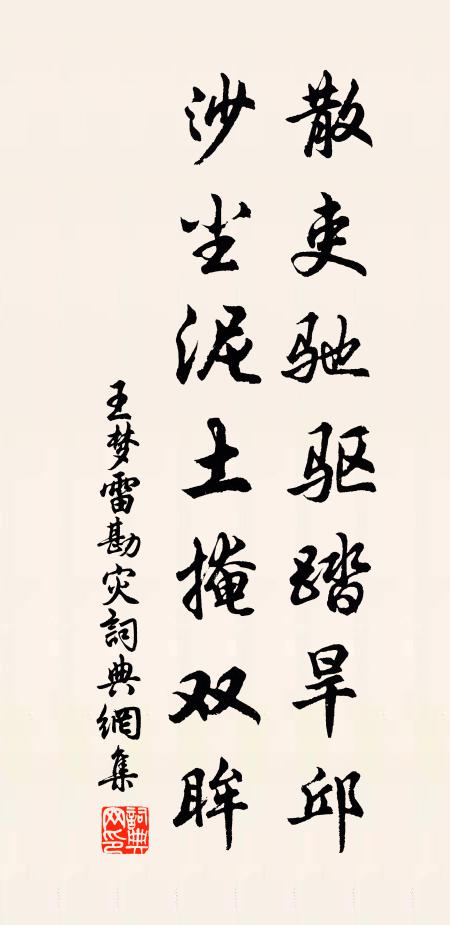 散吏驰驱踏旱邱
沙尘泥土掩双眸
王梦雷勘灾詞典網集
詞典網印